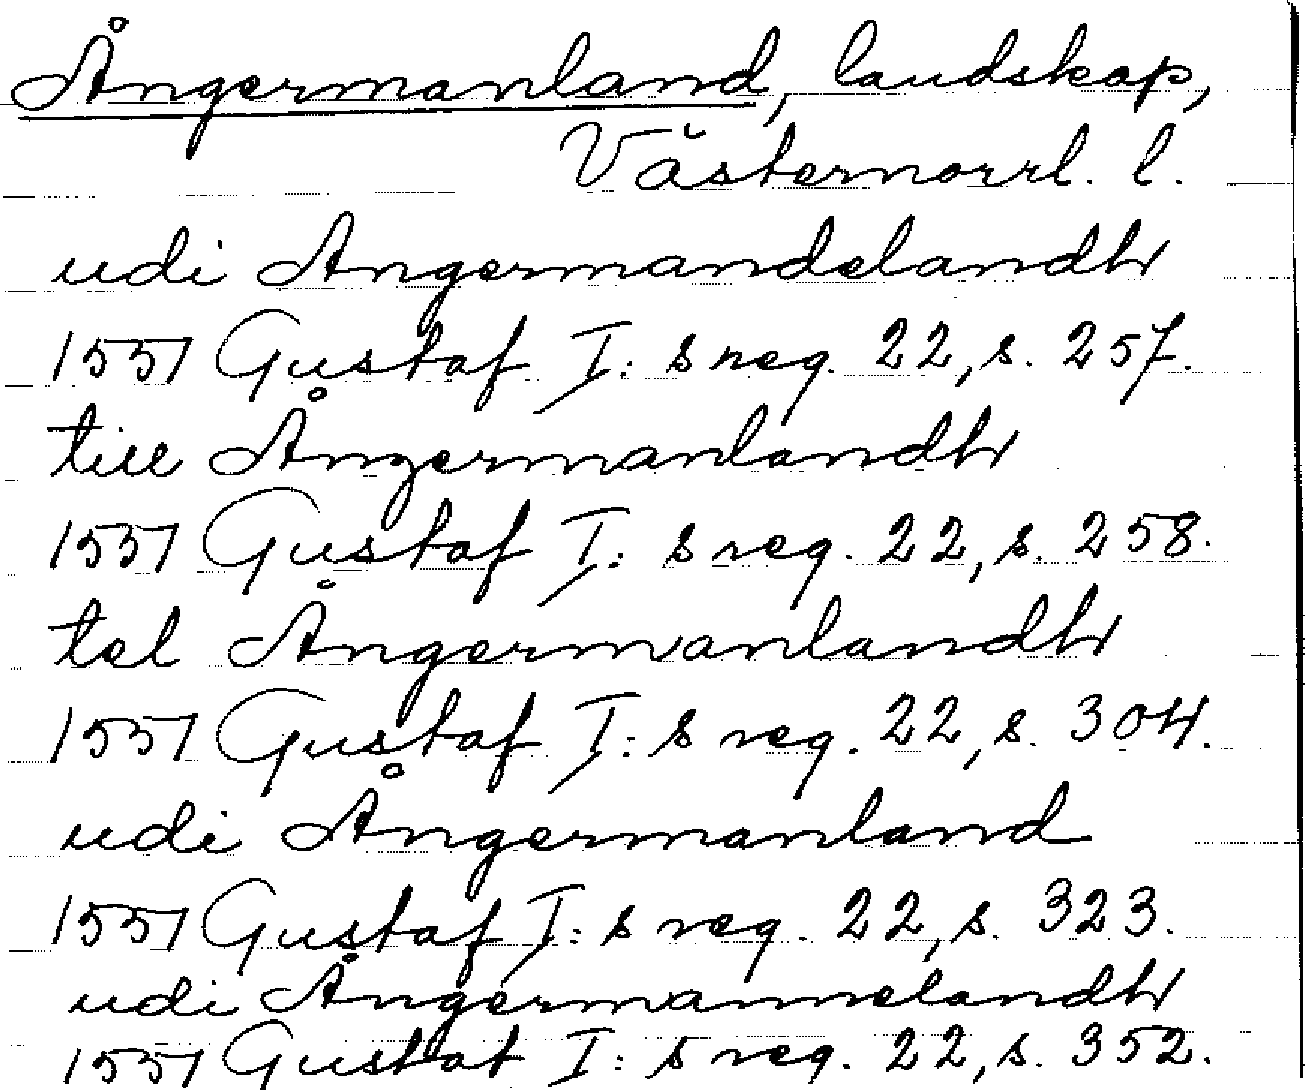 Ångermanland, landskap,
Västernorrl. l.
udi Angermandelandh
1551 Gustaf I:s reg. 22, s. 257.
till Ångermanlandh
1551 Gustaf I:s reg. 22, s. 258.
tel Ångermanlandh
1551 Gustaf I:s reg. 22, s. 304.
udi Ångermanland
1551 Gustaf I:s reg. 22, s. 323.
udi Ångermannelandh
1551 Gustaf I:s reg. 22, s. 352.